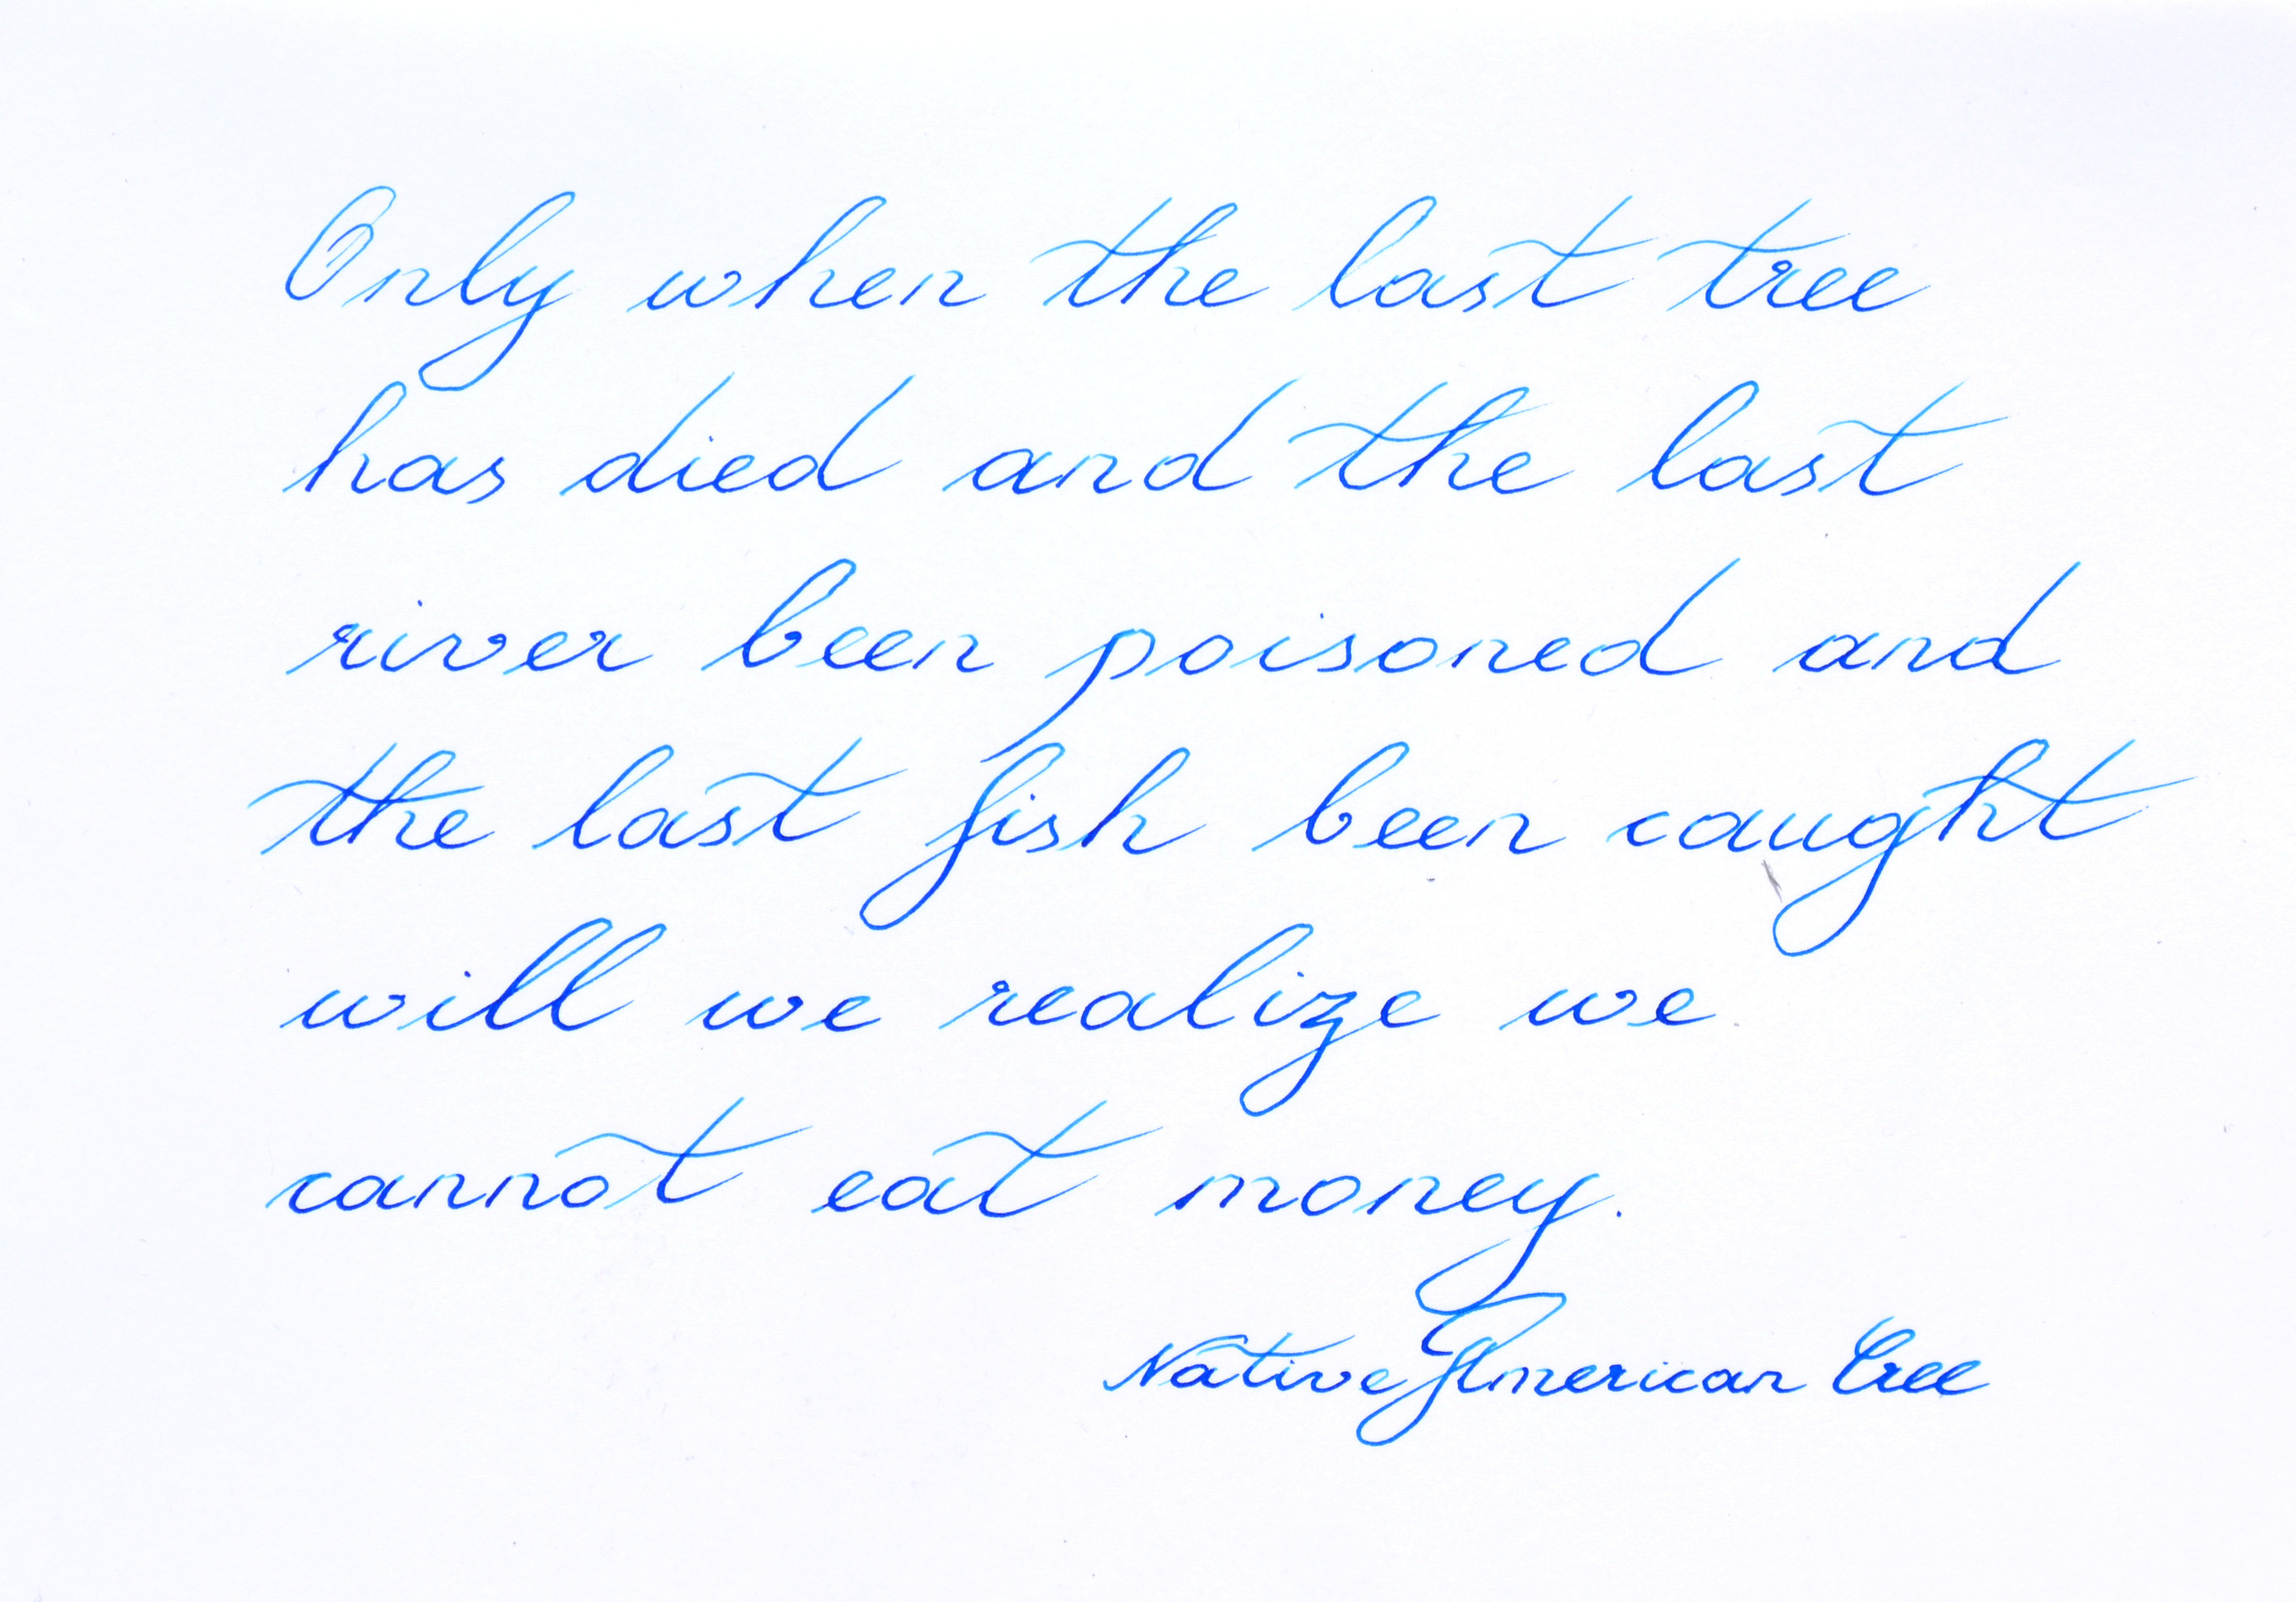 Only when the last tree
has died and the last
river been poisoned and
the last fish been caught
will we realize we
cannot eat money.
Native American Cree